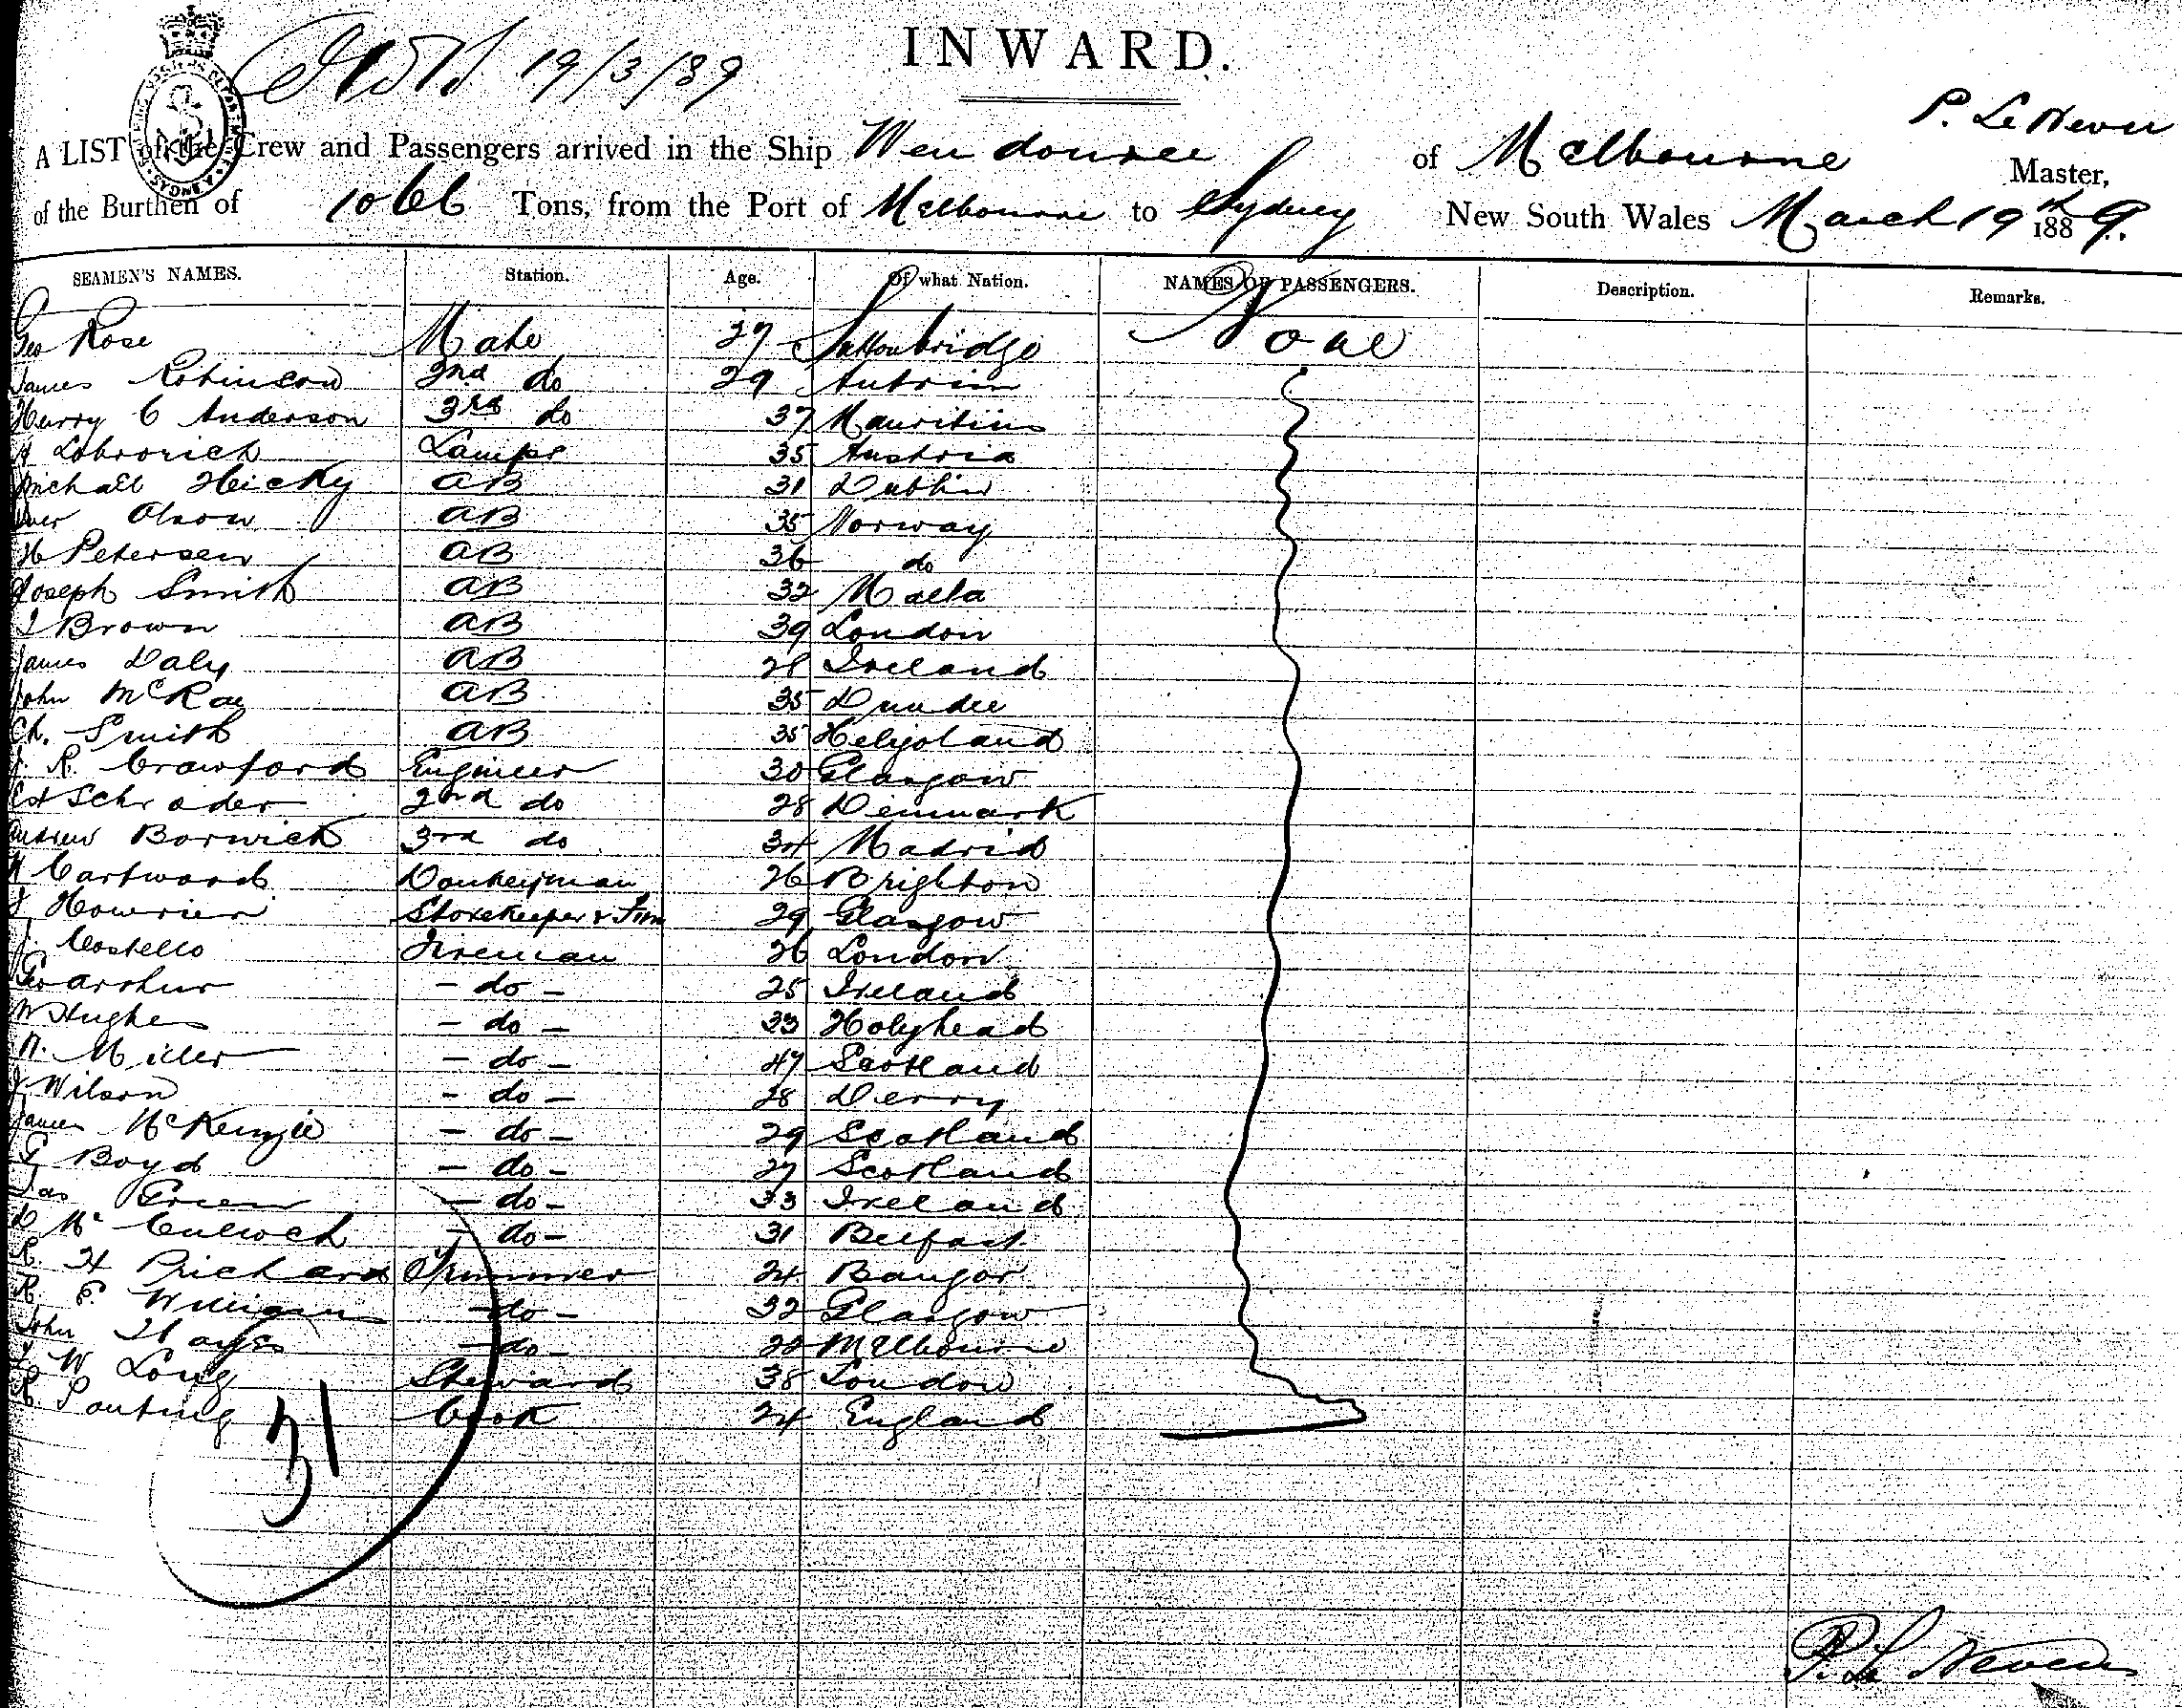 INWARD.
19/3/89
P. Le Neveu
A LIST of the Crew and Passengers arrived in the Ship Wendouree of Melbourne Master,
of the Burthen of 1066 Tons, from the Port of Melbourne to Sydney New South Wales March 19th 1889.
SEAMEN'S NAMES. Station. Age. Of what Nation. NAMES OF PASSENGERS. Description. Remarks.
Geo Rose Mate 27 Suttonbridge None
James Robinson 2nd do 29 Antrim
Harry C Anderson 3rd do 37 Mauritius
Lamps 35 Austria
Michael Hicky AB 31 Dublin
Olson AB 35 Norway
H Petersen AB 36 do
Joseph Smith AB 32 Malta
J Brown AB 39 London
James Daly AB 28 Ireland
John McRae AB 35 Dundee
Ch. Smith AB 35 Heligoland
J. R. Crawford Engineer 30 Glasgow
Schrader 2nd do 28 Denmark
Andrew Borwick 3rd do 34 Madrid
Donkeyman 26 Brighton
Storekeeper & Firm 29 Glasgow
J. Costello Fireman 26 London
Geo Arthur - do - 25 Ireland
W Hughes - do - 33 Holyhead
Miller - do - 47 Scotland
J Wilson - do - 28 Derry
James McKenzie - do - 29 Scotland
G Boyd - do - 27 Scotland
Jas Green - do - 33 Ireland
D McCulloch - do - 31 Belfast
R H Prichard Trimmer 24 Bangor
R. E. Williams - do - 32 Glasgow
John Hayes - do - 22 Melbourne
W Long Steward 38 London
R Ponting Cook 24 England
31
P. Le Neveu